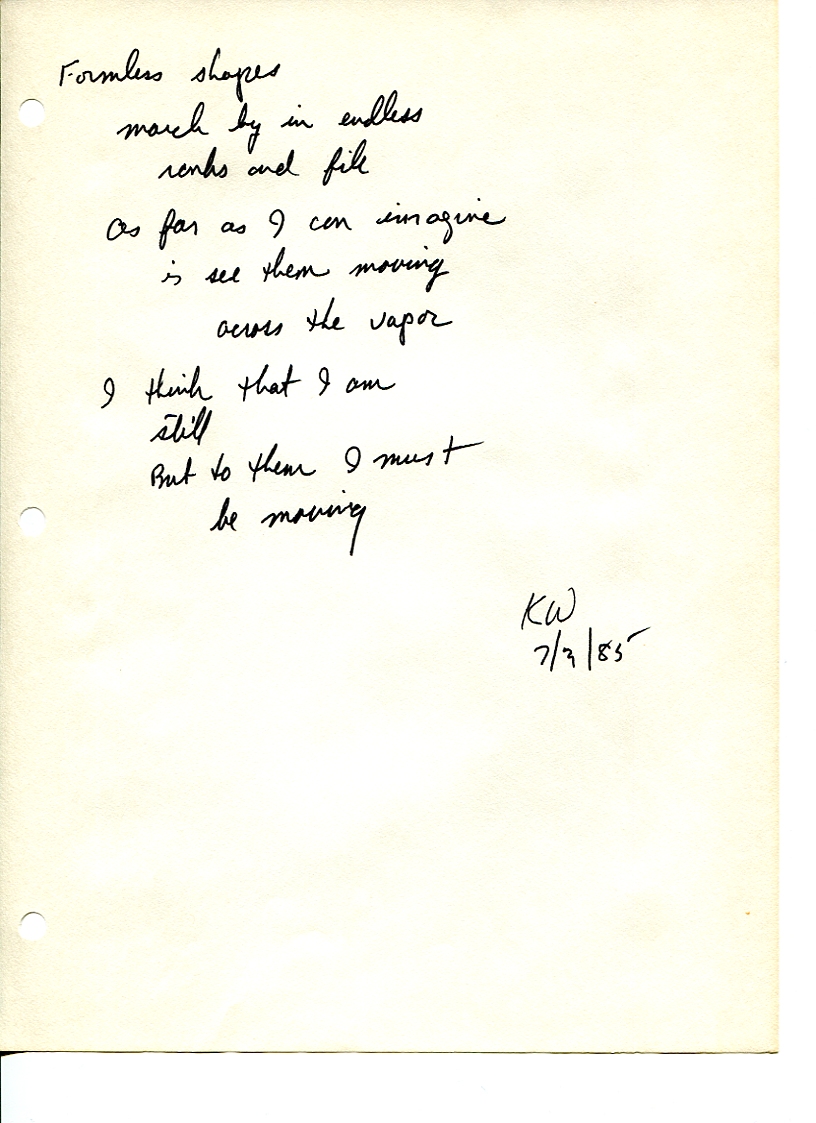 Formless shapes
march by in endless
ranks and file
as far as I can imagine
is see them moving
across the vapor
I think that I am
still
But to them I must
be moving
KW
7/2/85